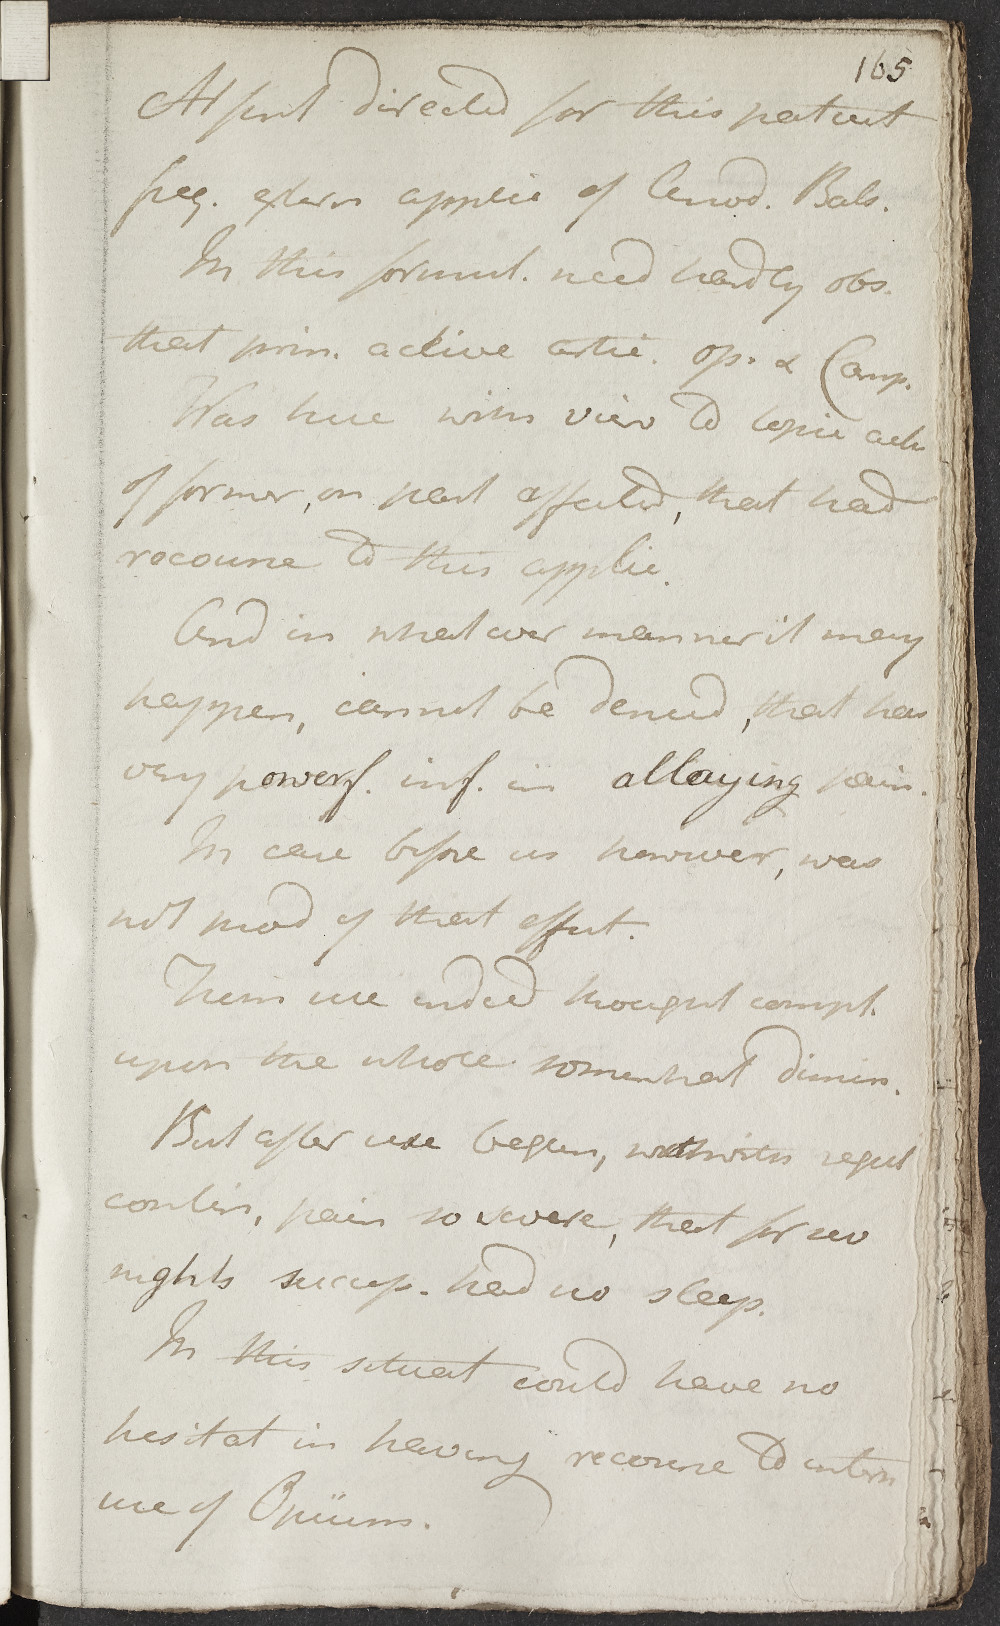 165
At first directed for this patient
freq. extern applic of Anod. Bals.
In this formul. need hardly obs.
that prin. active artic. op. & Camp.
Was here with view to topic actn
of former, on part affected, that had
recourse to this applic.
And in whatever manner it may
happen, cannot be denied, that has
very powerf. inf. in allaying pain.
In case before us however, was
not prod of that effect.
From use indeed thought compl.
upon the whole somewhat dimin.
But after use begun, with regul
contin, pain so severe, that for sev
nights success. had no sleep.
In this situat could have no
hesitat in having recourse to intern
use of Opium.